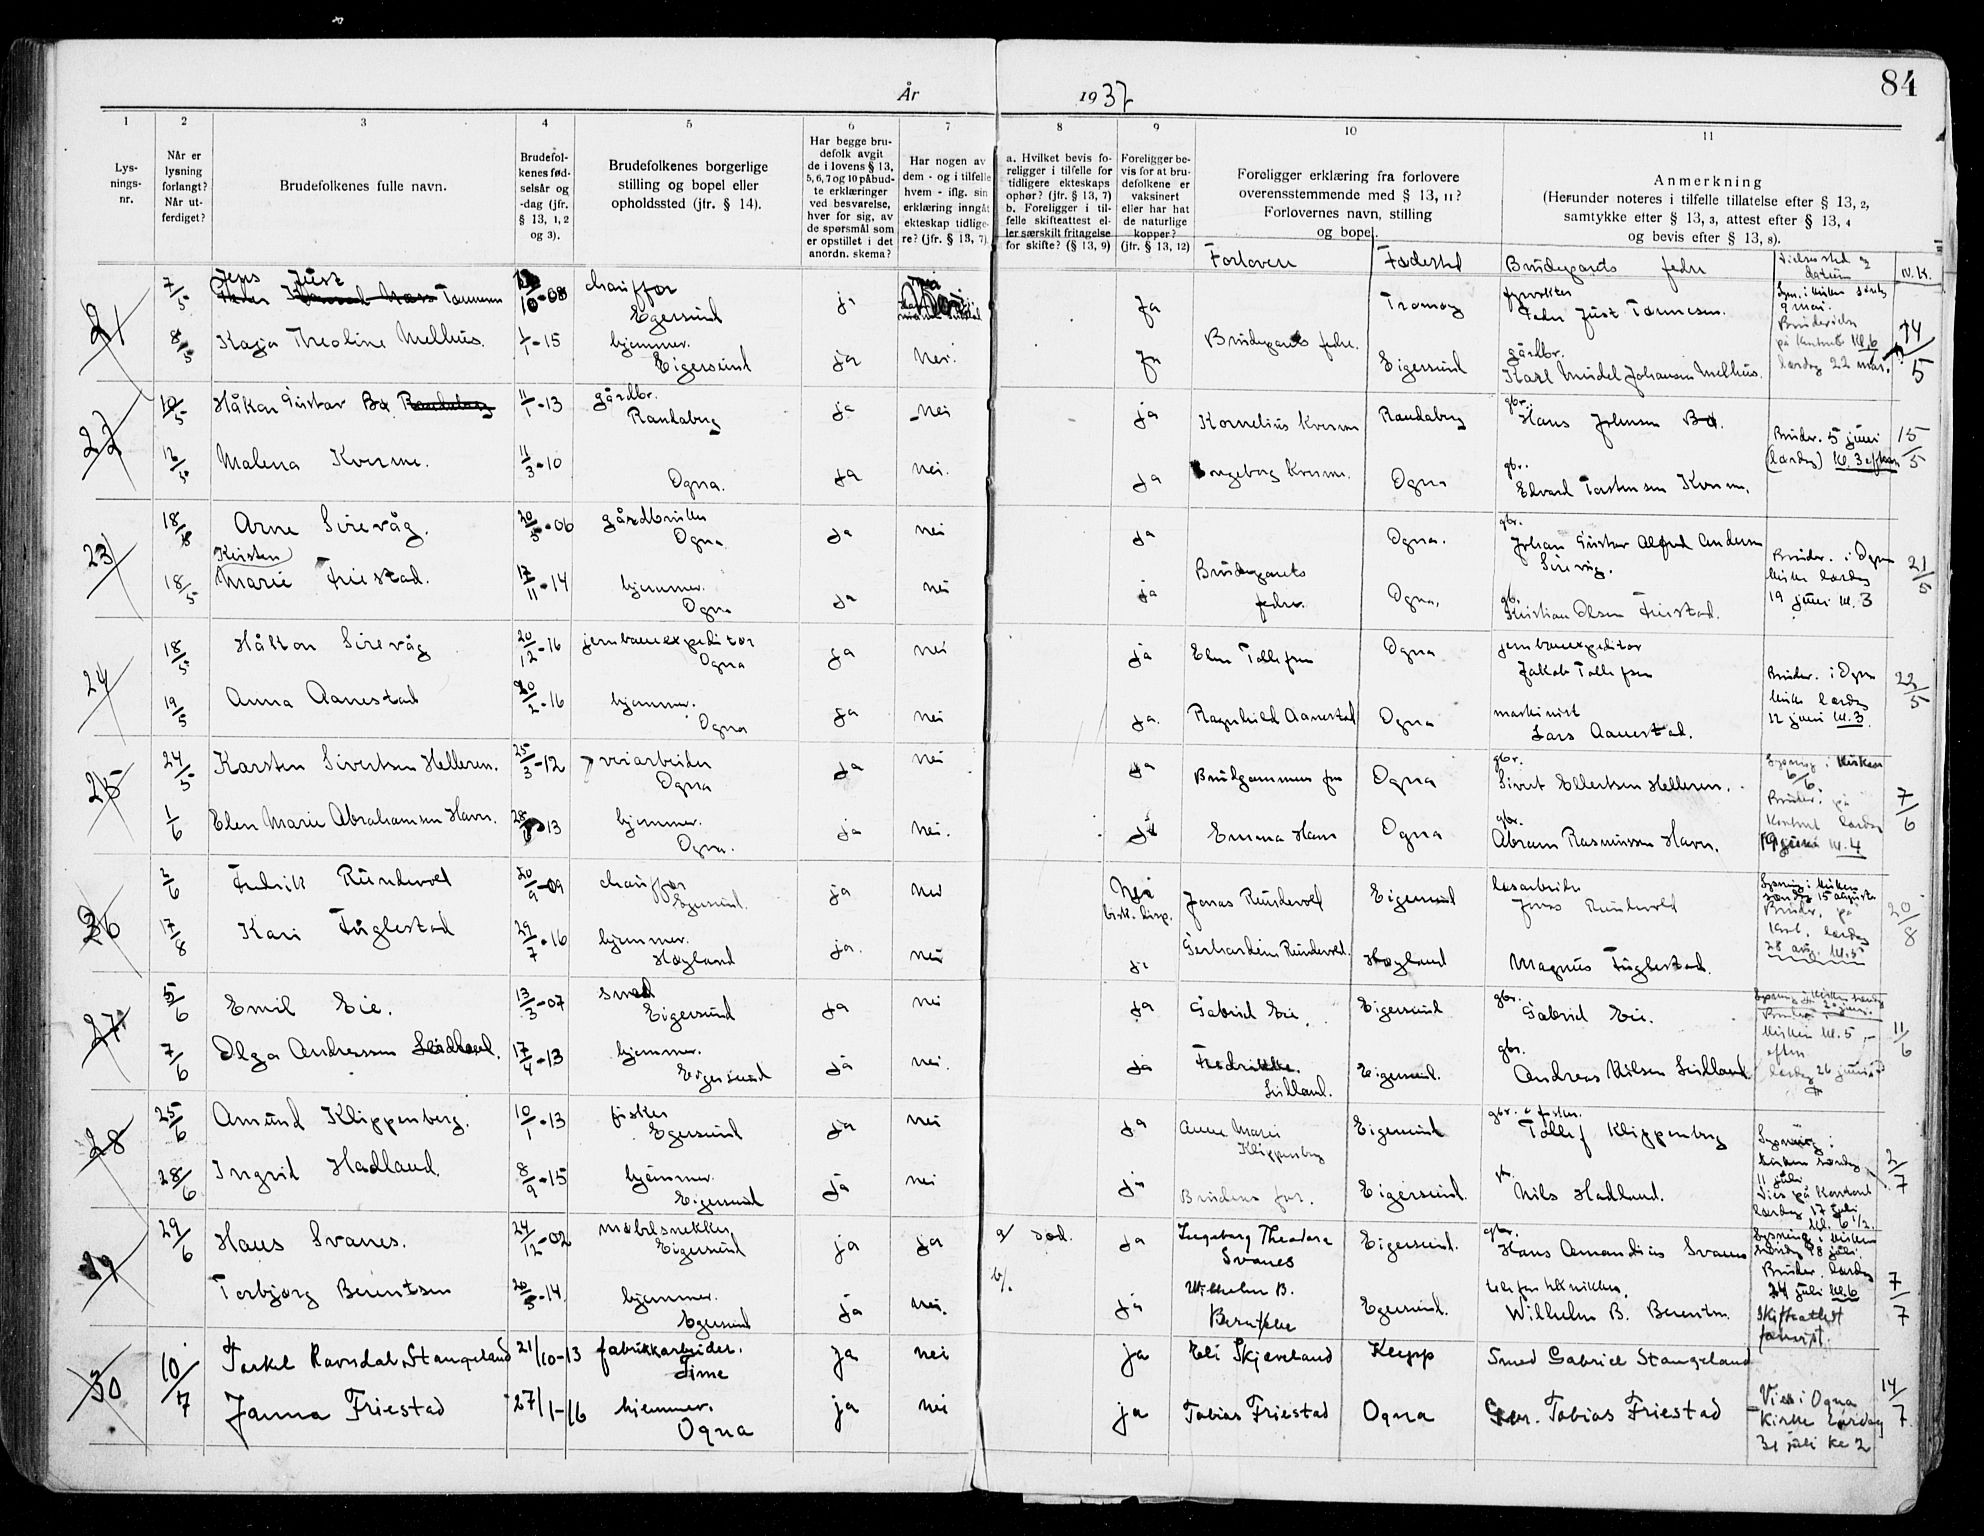 84
År 1937
1 2 3 4 5 6 7 8 9 10 11
Lys-
nings-
nr.
Når er
lysning
forlangt?
Når ut-
ferdiget?
Brudefolkenes fulle navn.
Brudefol-
kenes fød-
selsår og
-dag (jfr.
§ 13, 1, 2
og 3).
Brudefolkenes borgerlige
stilling og bopel eller
opholdssted (jfr. § 14).
Har begge bru-
defolk avgit
de i lovens § 13,
5, 6, 7 og 10 påbud-
te erklæringer
ved besvarelse,
hver for sig, av
de spørsmål som
er opstillet i det
anordn. skema?
Har nogen av
dem - og i tilfelle
hvem - iflg. sin
erklæring inngåt
ekteskap tidlige-
re? (jfr. § 13, 7)
a. Hvilket bevis fo-
religger i tilfelle for
tidligere ekteskaps
ophør? (jfr. § 13, 7)
b. Foreligger i til-
felle skifteattest el-
ler særskilt fritagelse
for skifte? (§ 13, 9)
Foreligger be-
vis for at bru-
defolkene er
vaksinert
eller har hat
de naturlige
kopper?
(jfr. § 13, 12)
Foreligger erklæring fra forlovere
overensstemmende med § 13, 11?
Forlovernes navn, stilling
og bopel.
Anmerkning
(Herunder noteres i tilfelle tillatelse efter § 13, 2,
samtykke efter § 13, 3, attest efter § 13, 4
og bevis efter § 13, 8).
Forlovere Fødested Brudeparets fedre Vielsessted og datum
21 7/5 Jens Just Tønnessen 10-08 chauffør Egersund ja ja Tromøy Peder Just Tønnesen.
8/5 Kaja Theoline Melhus. 1/1-15 hjemmev. Eigersund ja Nei. ja Brudeparets fedre. Eigersund gårdbr. Karl Mindel Johansen Melhus. på kontoret kl. 6 lørdag 22 mai. 14/5
22 10/5 Håkon Gustav Bø 11/1-13 gårdbr. Randaberg ja Nei ja Kornelius Kverme Randaberg gbr. Hans Johnsen Bø.
12/5 Malena Kverme. 11/3-10 Ogna. ja nei. ja Ingeborg Kverme. Ogna gbr. Edvard Torstensen Kverme. Bruder. 5 juni (lørdag) kl. 3 15/5
23 18/5 Arne Sirevåg. 20/5-06 gårdbruker Ogna ja nei ja Ogna. gbr. Johan Gustav Alfred Andersen Sirevåg.
18/5 Kirsten Marie Friestad. 17/11-14 hjemmev. Ogna ja nei ja Brudeparets fedre. Ogna. gb. Kristian Olsen Friestad. Bruder. i Ogna kirke lørdag 19 juni kl. 3 21/5
24 18/5 Håkon Sirevåg 20/12-16 jernbaneexpeditør Ogna ja nei ja Elen Tollefsen Ogna jernbaneexpeditør Jakob Tollefsen
19/5 Anna Aanestad 20/2-16 hjemmev. Ogna ja nei ja. Ragnhild Aanestad Ogna maskinist Lars Aanestad. Bruder. i Ogna kirke lørdag 12 juni kl. 3 22/5
25 24/5 Karsten Sivertsen Helleren. 25/3-12 veiarbeider Ogna ja nei ja Brudgommens far Ogna gbr. Sivert Ellertsen Helleren.
1/6 Elen Marie Abrahamsen Havn. 28 13 hjemmev. Ogna. ja nei. ja Emma Havn Ogna gbr. Abram Rasmussen Havn. Lysning i kirken 6/6. Bruder. på kontoret lørdag 19 juni kl. 4 7/6
26 2/6 Fredrik Rundevold 20/9-09 chauffør Egersund. ja nei Nei bisk. disp. Jonas Rundevold Eigersund løsarbeider Jonas Rundevold
17/8 Kari Fuglestad 29/7-16 hjemmev. Høyland ja. nei ja Gerhardine Rundevold. Høyland Magnus Fuglestad. Lysning i kirken søndag 15 august Bruder. på kont. lørdag 28 aug. kl. 5 20/8
27 5/6 Emil Eie. 13/3-07 smed Eigersund ja nei ja Gabriel Eie. Eigersund gbr. Gabriel Eie.
7/6 Olga Andreassen 17/4-13 hjemmev. Eigersund ja nei. ja Eigersund. gbr. Andreas Nilsen kirken kl. 5 lørdag 26 juni 11/6
28 25/6 Amund Klippenberg. 10/1-13 fisker Egersund ja nei ja Anne Marie Klippenberg Eigersund gbr. & fisker. Tollef Klippenberg
28/6 Ingrid Hadland. 8/9-15 hjemmev. Eigersund ja nei ja Brudens far. Eigersund. gbr. Nils Hadland. Lysning i kirken søndag 11 juli Vies på kontoret lørdag 17 juli kl. 6 1/2. 2/7
29 29/6 Hans Svanes. 24/12-02 møbelsnekker Eigersund ja ja a/ død. ja Ingeborg Theodora Svanes Eigersund. gbr. Hans Amandius Svanes
Torbjørg Berentsen 20 14. hjemmev. Egersund ja nei. b/. ja Wilhelm B. Egersund. Wilhelm B. Berentsen. Lysning i kirken søndag 18 juli. Bruder. lørdag 24 juli kl. 6 Skifteattest forevist. 7/7
30 10/7 Torkel Ravndal Stangeland 21/10-13 fabrikkarbeider. Time ja nei ja Eli Skjæveland Klepp Smed Gabriel Stangeland
Janna Friestad 27/1-16 hjemmev. Ogna ja nei ja Tobias Friestad Ogna Gbr. Tobias Friestad Vies i Ogna Kirke Lørdag 31 juli kl 2 14/7.